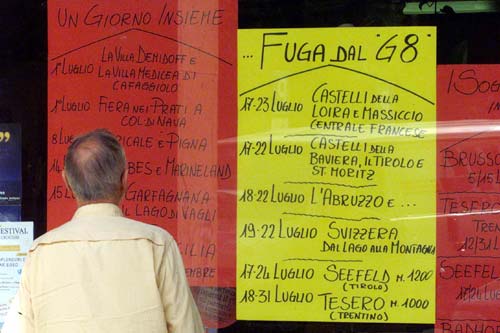 UN GIORNO INSIEME
1° LUGLIO LA VILLA DEMIDOFF E
LA VILLA MEDICEA DI
CAFAGGIOLO
1° LUGLIO FIERA NEI PRATI A
COL DI NAVA
8 LUGLIO & PIGNA
14 & MARINELAND
15 L GARFAGNANA
IL LAGO DI VAGLI
... FUGA DAL "G8"
17-23 LUGLIO CASTELLI DELLA
LOIRA E MASSICCIO
CENTRALE FRANCESE
17-22 LUGLIO CASTELLI DELLA
BAVIERA, IL TIROLO E
ST MORITZ
18-22 LUGLIO L'ABRUZZO E ...
19-22 LUGLIO SVIZZERA
DAL LAGO ALLA MONTAGNA
17-24 LUGLIO SEEFELD M. 1200
(TIROLO)
18-31 LUGLIO TESERO M. 1000
(TRENTINO)
I SOG
BRUSSO
TESERO
SEEFELD
FESTIVAL